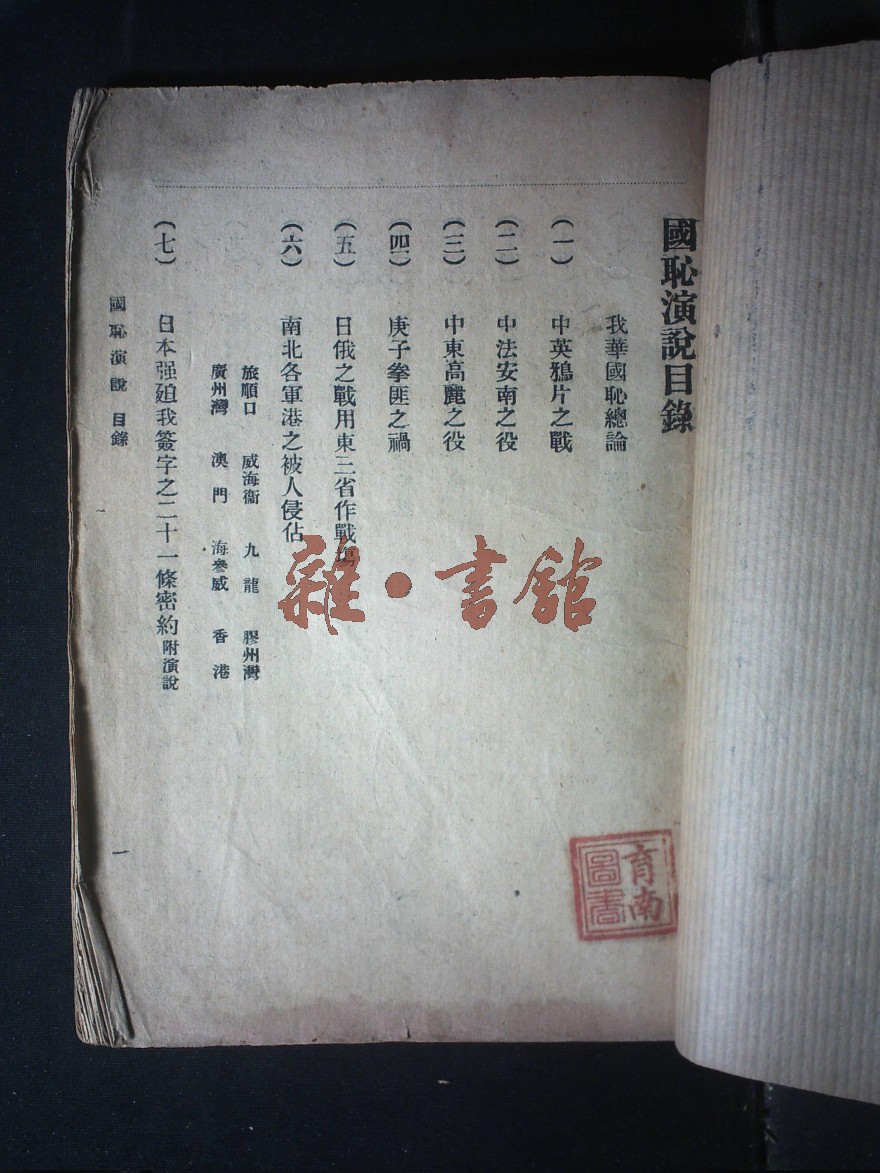 國恥演說目錄
我華國恥總論
(一) 中英鴉片之戰
(二) 中法安南之役
(三) 中東高麗之役
(四) 庚子拳匪之禍
(五) 日俄之戰用東三省作戰場
(六) 南北各軍港之被人侵佔
旅順口 威海衞 九龍 膠州灣
廣州灣 澳門 海參威 香港
(七) 日本强廹我簽字之二十一條密約附演說
國恥演說 目錄
一
雜·書館
育南圖書